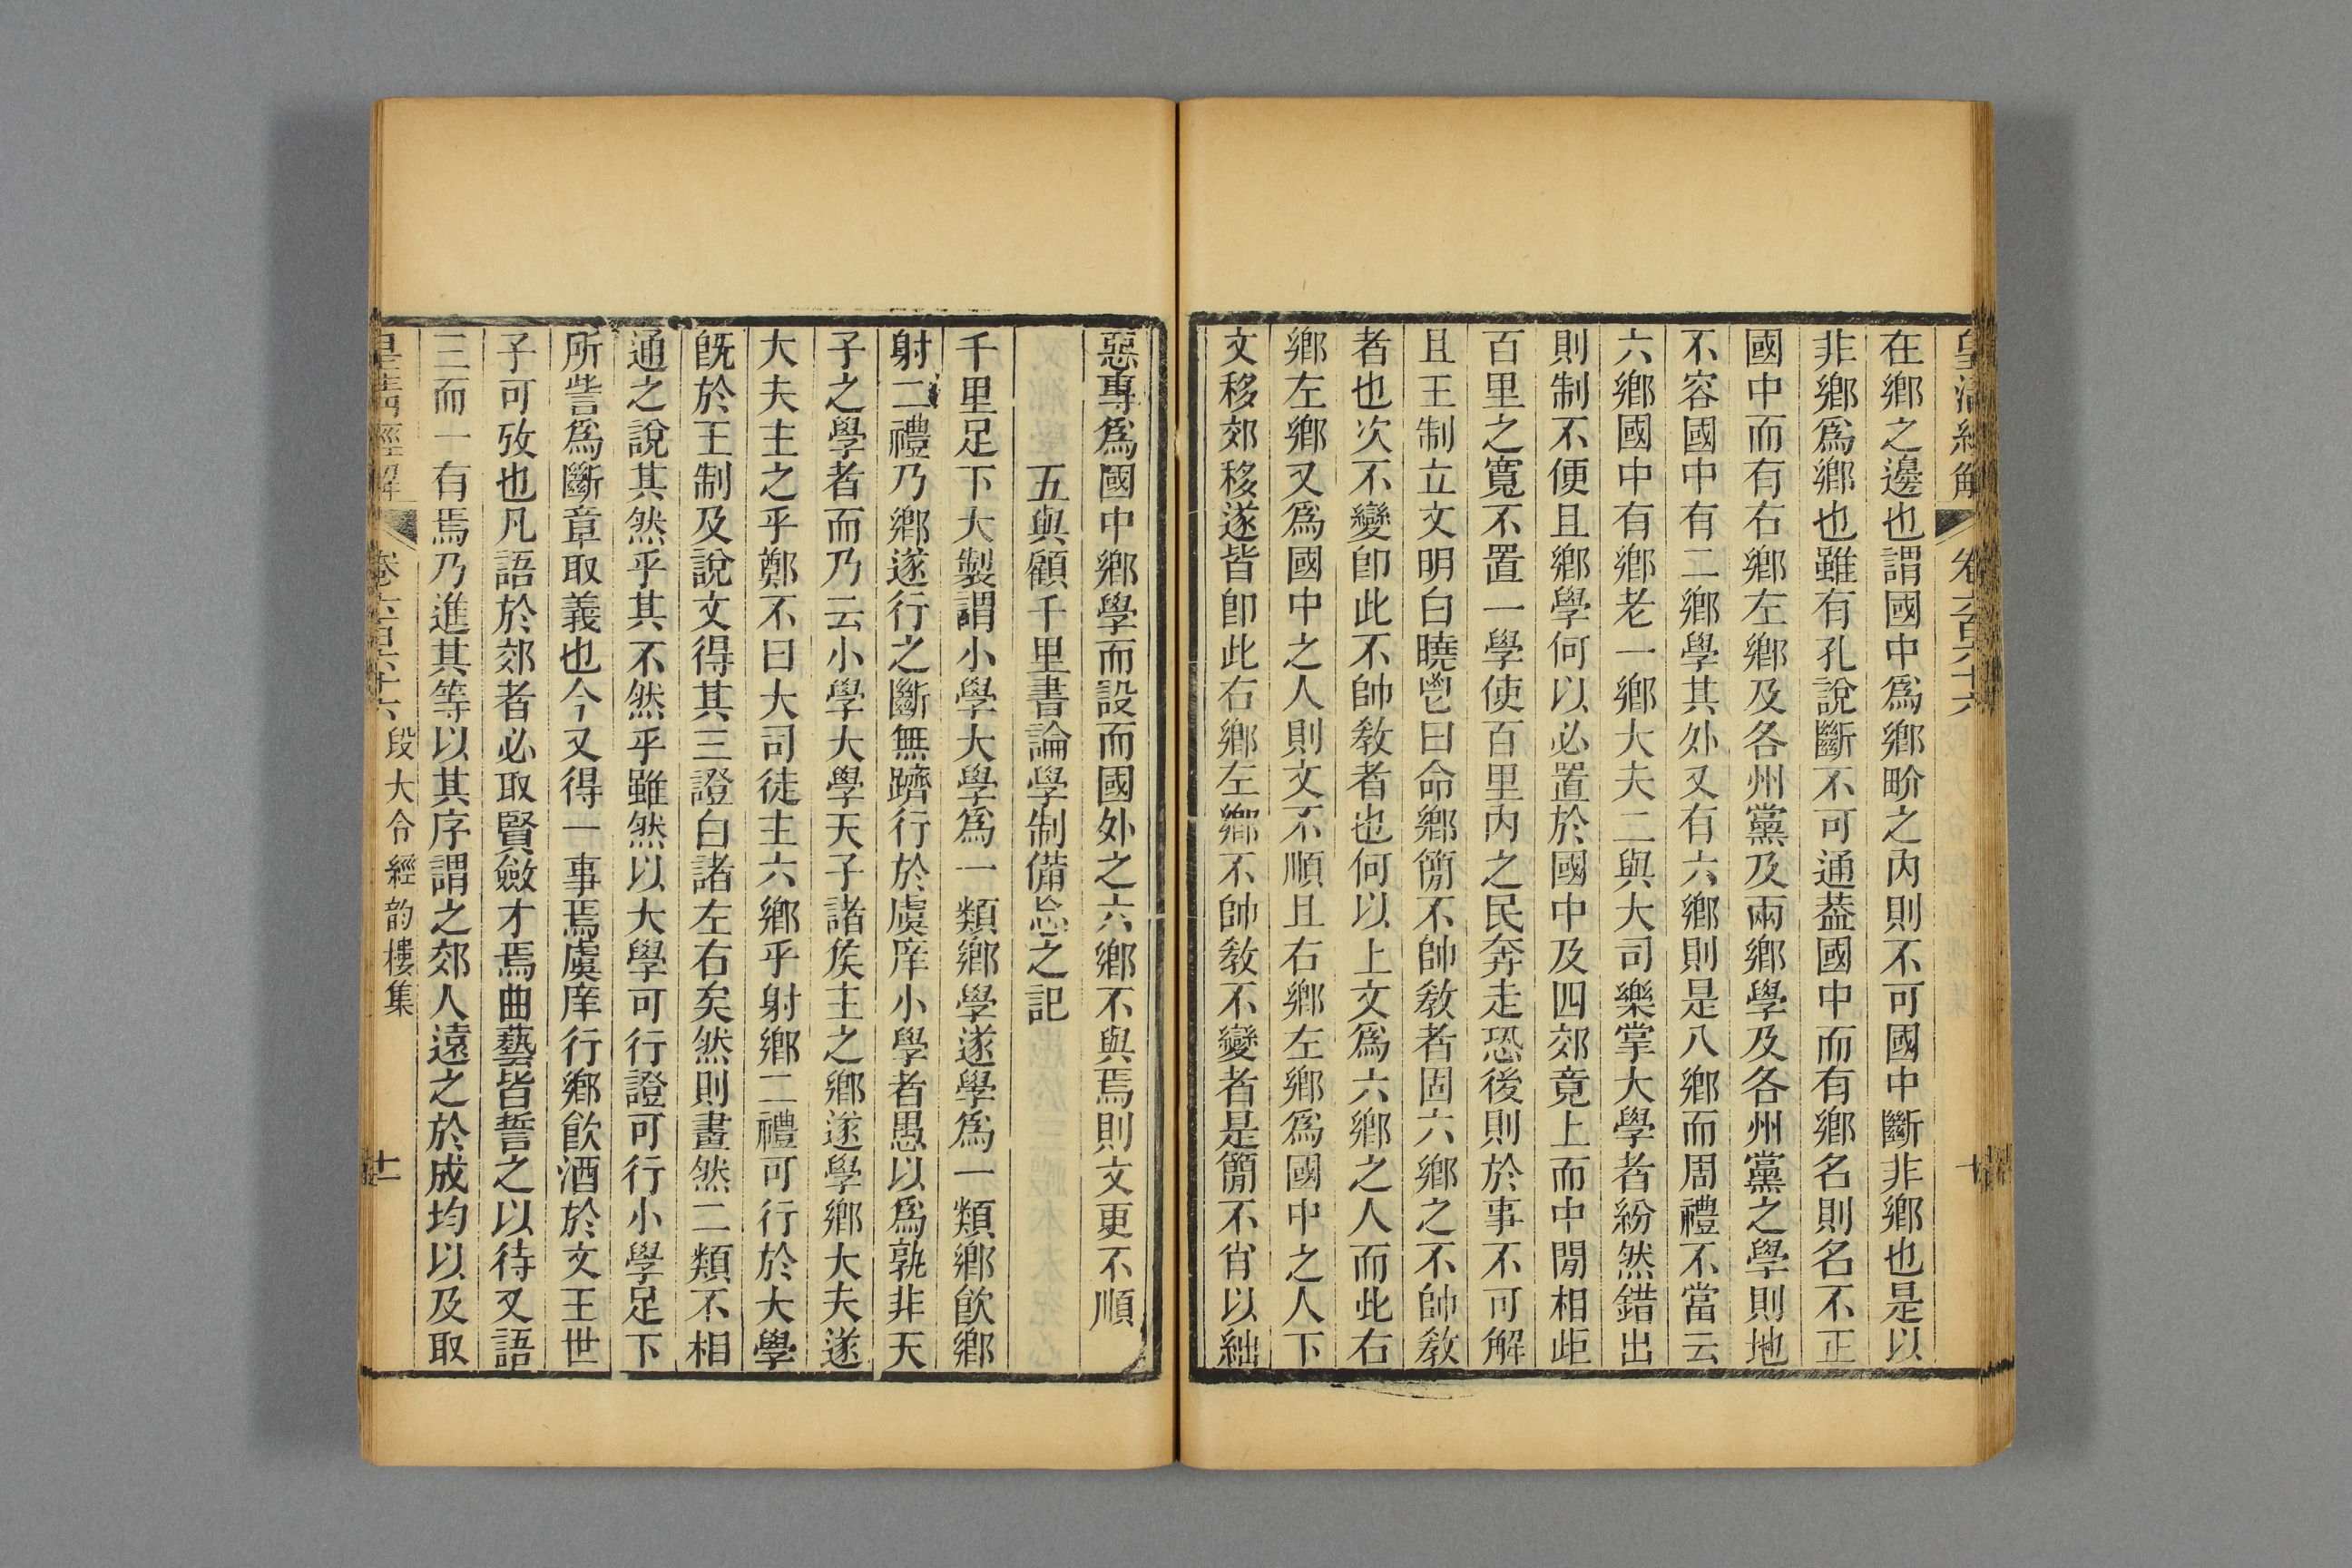 皇清經解 卷六百六十六 十
在鄉之邊也謂國中爲鄉畍之內則不可國中斷非鄉也是以
非鄉爲鄉也雖有孔說斷不可通葢國中而有鄉名則名不正
國中而有右鄉左鄉及各州黨及兩鄉學及各州黨之學則地
不容國中有二鄉學其外又有六鄉則是八鄉而周禮不當云
六鄉國中有鄉老一鄉大夫二與大司樂掌大學者紛然錯出
則制不便且鄉學何以必置於國中及四郊竟上而中閒相歫
百里之寬不置一學使百里內之民奔走恐後則於事不可解
且王制立文明白曉鬯曰命鄉簡不帥敎者固六鄉之不帥敎
者也次不變卽此不帥敎者也何以上文爲六鄉之人而此右
鄉左鄉又爲國中之人則文不順且右鄉左鄉爲國中之人下
文移郊移遂皆卽此右鄉左鄉不帥敎不變者是簡不肖以絀
惡專爲國中鄉學而設而國外之六鄉不與焉則文更不順
五與顧千里書論學制備忘之記
千里足下大製謂小學大學爲一類鄉學遂學爲一類鄉飮鄉
射二禮乃鄉遂行之斷無躋行於虞庠小學者愚以爲孰非天
子之學者而乃云小學大學天子諸矦主之鄉遂學鄉大夫遂
大夫主之乎鄭不曰大司徒主六鄉乎射鄉二禮可行於大學
旣於王制及說文得其三證白諸左右矣然則畫然二類不相
通之說其然乎其不然乎雖然以大學可行證可行小學足下
所訾爲斷章取義也今又得一事焉虞庠行鄉飮酒於文王世
子可攷也凡語於郊者必取賢斂才焉曲藝皆誓之以待又語
三而一有焉乃進其等以其序謂之郊人遠之於成均以及取
皇淸經解 卷六百六十六 段大令經韵樓集 十一